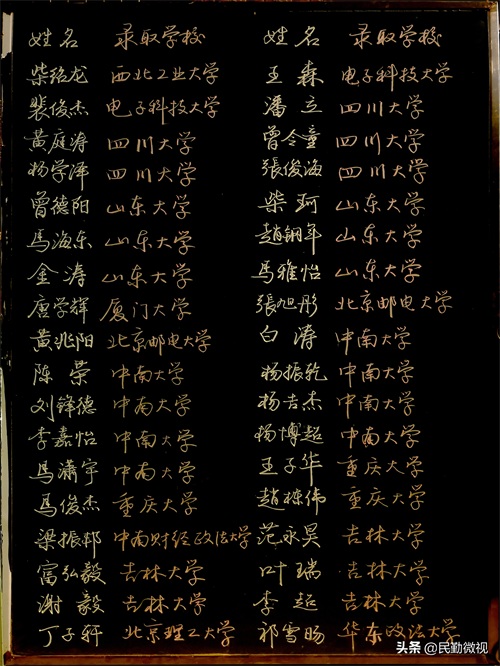 姓名 录取学校 姓名 录取学校
柴铭龙 西北工业大学 王森 电子科技大学
裴俊杰 电子科技大学 潘立 四川大学
黄庭涛 四川大学 曾令童 四川大学
杨学泽 四川大学 張俊海 四川大学
曾德阳 山东大学 柴珂 山东大学
馬海东 山东大学 趙钢年 山东大学
金涛 山东大学 馬雅怡 山东大学
唐学辉 厦门大学 張旭彤 北京邮电大学
黄兆阳 北京邮电大学 白涛 中南大学
陈荣 中南大学 杨振乾 中南大学
刘锋德 中南大学 杨吉杰 中南大学
李嘉怡 中南大学 杨博超 中南大学
馬瀟宇 中南大学 王子华 重庆大学
馬俊杰 重庆大学 趙栋伟 重庆大学
梁振邦 中南财经政法大学 范永昊 吉林大学
富弘毅 吉林大学 叶瑞 吉林大学
謝毅 吉林大学 李超 吉林大学
丁子轩 北京理工大学 祁雪旸 华东政法大学
头条 @民勤微视